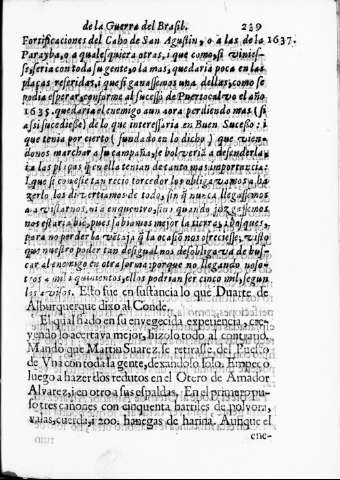 de la Guerra del Brasil. 239
Fortificaciones del Cabo de San Agustin, o a las de la 1637.
Parayba, o a qualesquiera otras, i que como, si viniesse,
seria con toda su gente, o la mas, quedaria poca en las
plaças referidas, que si ganassemos una dellas, como se
podia esperar, conforme al sucesso de Puertocalvo el año
1635. quedaria el enemigo aun aora perdiendo mas (si
assi sucediesse) de lo que interessaria en Buen Sucesso: i
que tenia por cierto (fundado en lo dicho) que viendonos
marchar a su campaña, se bolveria a defenderla,
i a las plaças q̃ en ella tenian de tanto mas importancia:
I que si con este tan recio torcedor los obligavamos a hazerlo
los divertiamos de todo, sin q̃ nunca llegassemos
a avistarnos, ni a enquentro, sin q̃ quando juzgassemos
nos estaria bié, pues sabiamos mejor la tierra, i bosques,
para no perder la vétaja q̃ la ocasió nos ofreciesse; visto
que nuestro poder tan desigual nos desobligava de buscar
al enemigo en otra forma; porque no llegando nosotros
a mil i quinientos, ellos podrian ser cinco mil, segun
los avisos. Esto fue en sustancia lo que Duarte de
Alburquerque dixo al Conde.
El qual fiado en su envegecida experiencia, creyendo
lo acertava mejor, hizolo todo al contrario.
Mandò que Martin Suarez se retirasse del Puesto
de Vna con toda la gente, dexandolo solo. Empeçò
luego a hazer dos redutos en el Otero de Amador
Alvarez, i en otro a sus espaldas. En el primero puso
tres cañones con cinquenta barriles de polvora,
valas, cuerda, i 200. hanegas de harina. Aunque el
ene-